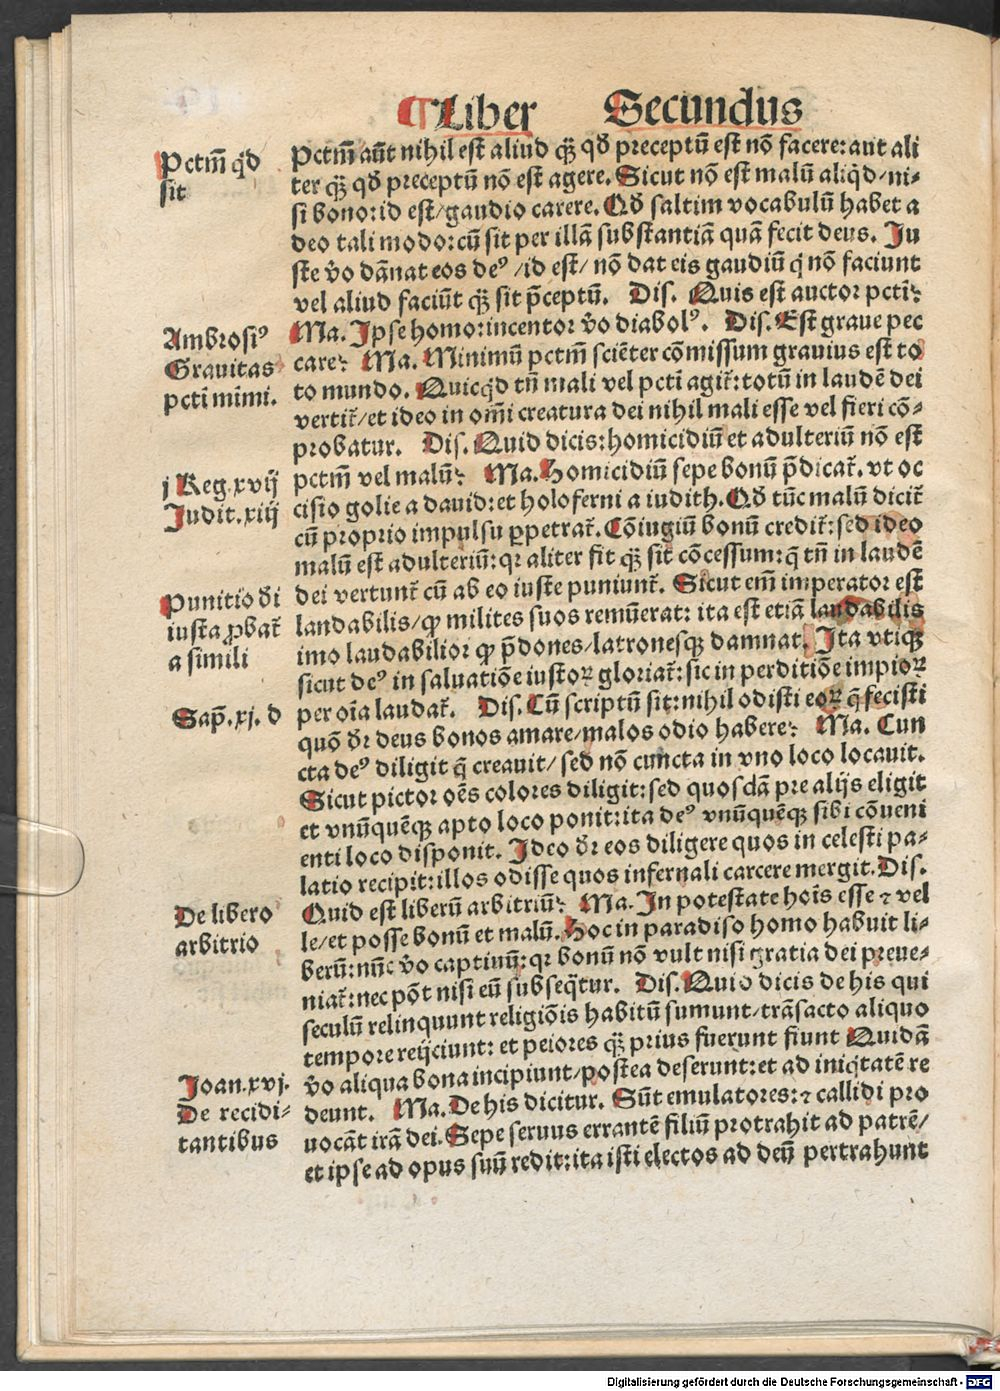 ¶Liber Secundus
Pctm̄ qd̄
sit
Pctm̄ aūt nihil est aliud qȝ̄ qd̄ preceptū est nō facere: aut ali
ter qȝ̄ qd̄ preceptū nō est agere. Sicut nō est malū aliqd̄/ ni-
si bono: id est/ gaudio carere. Qd̄ saltim vocabulū habet a
deo tali modo: cū sit per illā substantiā quā fecit deus. Iu
ste v̄o dānat eos deꝰ /id est/ nō dat eis gaudiū q̄ nō faciunt
vel aliud faciūt qȝ̄ sit p̄ceptū. Dis. Quis est auctor pcti?
Ma. Ipse homo: incentor v̄o diabolꝰ. Dis. Est graue pec
care? Ma. Minimū pctm̄ sciēter cōmissum grauius est to
to mundo. Quicqd̄ tn̄ mali vel pcti agit̄: totū in laudē dei
vertit̄/ et ideo in om̄i creatura dei nihil mali esse vel fieri cō-
probatur. Dis. Quid dicis: homicidiū et adulteriū nō est
pctm̄ vel malū? Ma. Homicidiū sepe bonū p̄dicat̄. vt oc
cisio golie a dauid: et holoferni a iudith. Qd̄ tūc malū dicit̄
cū proprio impulsu ꝑpetrat̄. Cōiugiū bonū credit̄: sed ideo
malū est adulteriū: qꝛ aliter fit qȝ̄ sit cōcessum: q̄ tn̄ in laudē
dei vertunt̄ cū ab eo iuste puniunt̄. Sicut em̄ imperator est
laudabilis/ ꝙ milites suos remūerat: ita est etiā laudabilis
imo laudabilior ꝙ p̄dones/ latronesqȝ damnat. Ita vtiqȝ
sicut deꝰ in saluatiōe iustoꝝ gloriat̄: sic in perditiōe impioꝝ
per oīa laudat̄. Dis. Cū scriptū sit: nihil odisti eoꝝ q̄ fecisti
quō dr̄ deus bonos amare/ malos odio habere? Ma. Cun
cta deꝰ diligit q̄ creauit/ sed nō cuncta in vno loco locauit.
Sicut pictor oēs colores diligit: sed quosdā pre alijs eligit
et vnūquēqȝ apto loco ponit: ita deꝰ vnūquēqȝ sibi cōueni
enti loco disponit. Ideo dr̄ eos diligere quos in celesti pa-
latio recipit: illos odisse quos infernali carcere mergit. Dis.
Quid est liberū arbitriū? Ma. In potestate hoīs esse ⁊ vel
le/ et posse bonū et malū. Hoc in paradiso homo habuit li-
berū: nūc v̄o captiuū: qꝛ bonū nō vult nisi gratia dei preue-
niat̄: nec pōt nisi eū subseq̄tur. Dis. Quid dicis de his qui
seculū relinquunt religiōis habitū sumunt/ trāsacto aliquo
tempore reijciunt: et peiores qȝ̄ prius fuerunt fiunt Quidā
v̄o aliqua bona incipiunt/ postea deserunt: et ad iniq̄tatē re
deunt. Ma. De his dicitur. Sūt emulatores: ⁊ callidi pro
uocāt irā dei. Sepe seruus errantē filiū protrahit ad patrē/
et ipse ad opus suū redit: ita isti electos ad deū pertrahunt
Ambrosiꝰ
Grauitas
pcti mimi.
j Reg. xvij
Iudit. xiij
Punitio di
iusta ꝓbat̄
a simili
Sap̄. xj. d
De libero
arbitrio
Joan. xvj.
De recidi-
tantibus
Digitalisierung gefördert durch die Deutsche Forschungsgemeinschaft - DFG